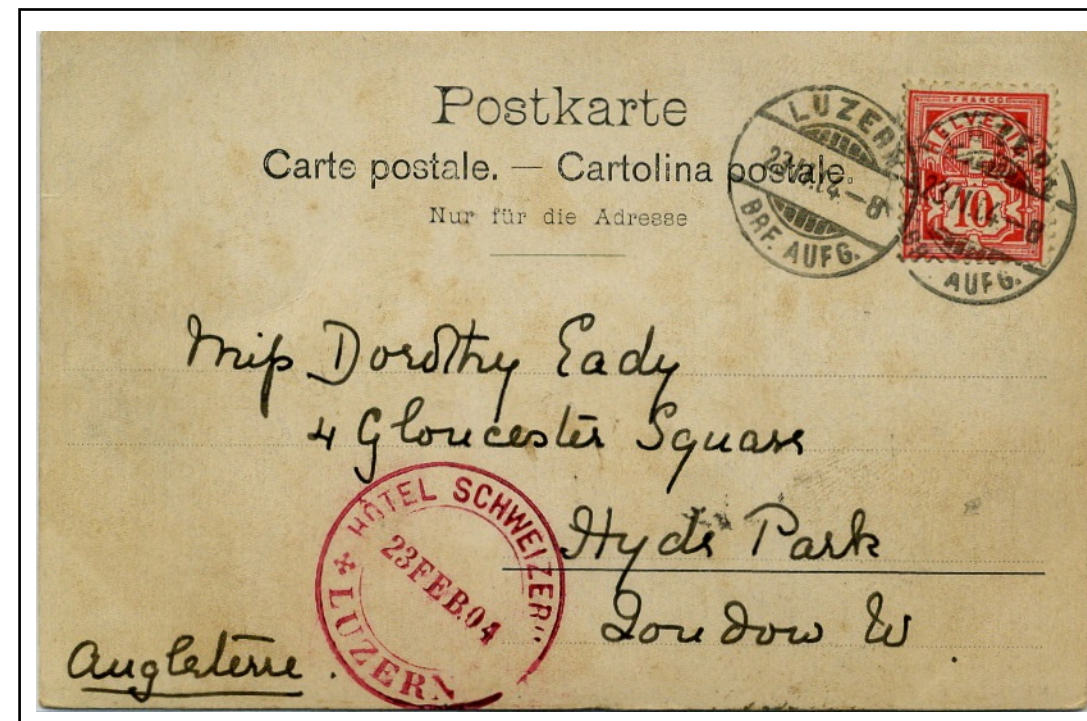 Postkarte
Carte postale. — Cartolina postale.
Nur für die Adresse
LUZERN
23.II.04.-8
BRF. AUFG.
FRANCO
HELVETIA
10
LUZERN
23.II.04.-8
BRF. AUFG.
Miss Dorothy Eady
4 Gloucester Square
Hyde Park
London W
Angleterre.
HÔTEL SCHWEIZERH
23 FEB. 04
LUZERN